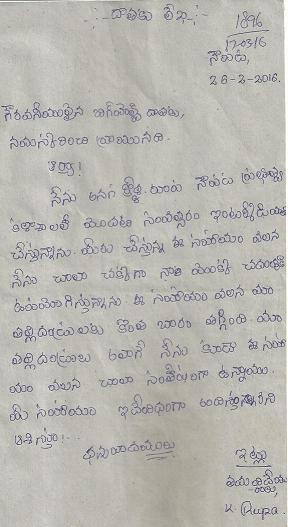 -:- దాతకు లేఖ -:-
1896
170316
నౌపడ,
26-2-2016.
గౌరవనీయులైన దాతకు,
నమస్కరించి వ్రాయునది.
అయ్యా!
నేను అనగా రూప. నేను నౌపడ ప్రభుత్వ
కళాశాలలో మొదటి సంవత్సరం ఇంటర్మీడియట్
చేస్తున్నాను. మీరు చేస్తున్న ఈ సహాయం వలన
నేను చాలా చక్కగా నా యొక్క చదువుకి
ఉపయోగిస్తున్నాను. ఈ సహాయం వలన మా
తల్లిదండ్రులకు కొంత బారం తగ్గింది. మా
తల్లిదండ్రులు అలాగే నేను కూడా ఈ సహా
యం వలన చాలా సంతోషంగా ఉన్నాము.
మీ సహాయం ఇదేవిధంగా అందిస్తున్నారని
ఆశిస్తూ!...
ధన్యవాదములు
ఇట్లు
తమ విధేయు
K. Rupa.